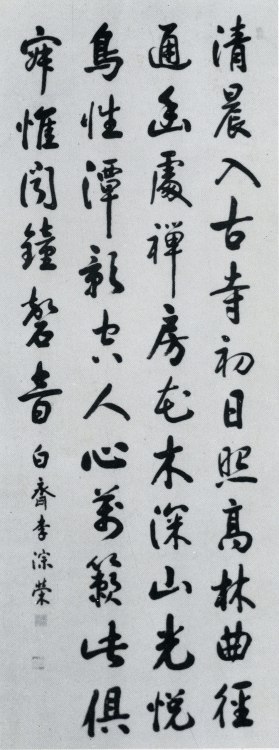 清晨入古寺初日照高林曲徑
通幽處禪房花木深山光悅
鳥性潭影空人心萬籟此俱
寂惟聞鐘磬音
白齋李淙榮